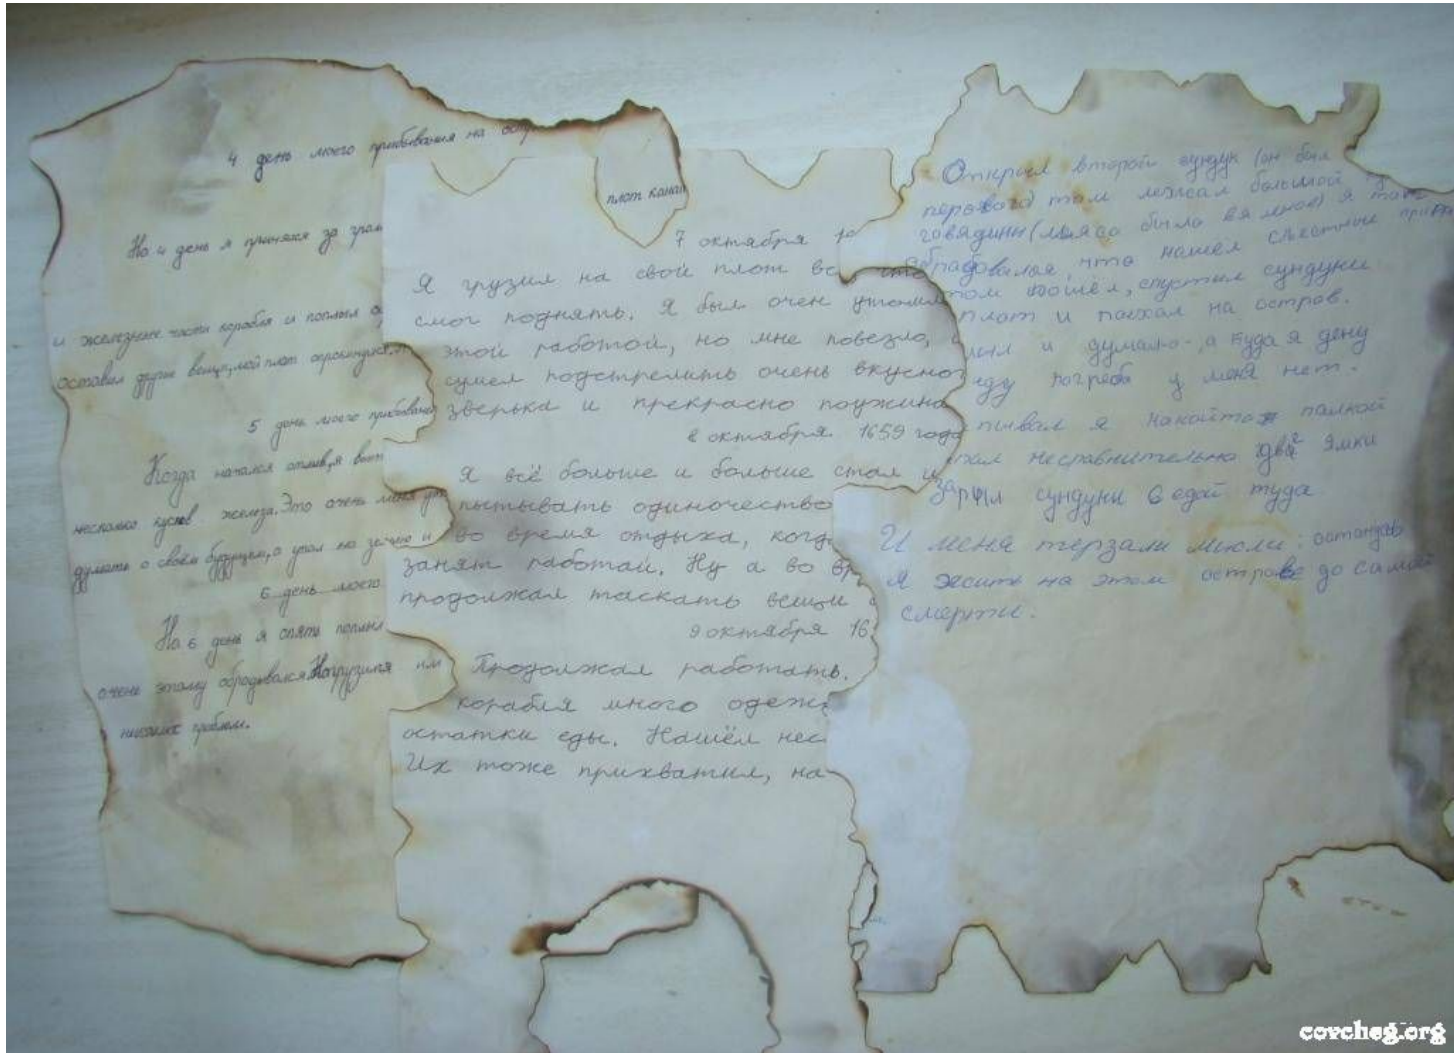 4 день моего прибывания на остр
плот канат
На 4 день я принялся за
и железные части корабля и поплыл
оставил другие вещи, мой плот опрокинулся,
5 день моего прибывания
Когда начался отлив, я
несколько кусков железа. Это очень меня
думать о своём будущем, а упал на землю и
6 день моего
На 6 день я опять поплыл
очень этому обродовался. Нагрузился
никаких проблем.
7 октября
Я грузил на свой плот всё что
смог поднять. Я был очен утомил
этой работой, но мне повезло,
сумел подстрелить очень вкусно
зверька и прекрасно поужина
8 октября 1659 года
Я всё больше и больше стал и
пытывать одиночество
во время отдыха, когд
занят работай. Ну а во вр
продолжал таскать вещи
9 октября 16
Продолжал работать.
корабля много одеж
остатки еды. Нашёл нес
Их тоже прихватил, на
Открыл второй сундук (он был
первого) там лежал большой
говядины (мясо было вяленое) я тоже
обрадовался, что нашёл съестные
том пошёл, спустил сундуки
плот и поехал на остров.
и думаю-, а куда я дену
еду погреба у меня нет.
я какойтож палкой
пал несравнительно две 2 ямки
зарыл сундуки с едой туда
И меня терзали мысли: останусь
я жить на этом острове до самой
смерти.
covcheg.org